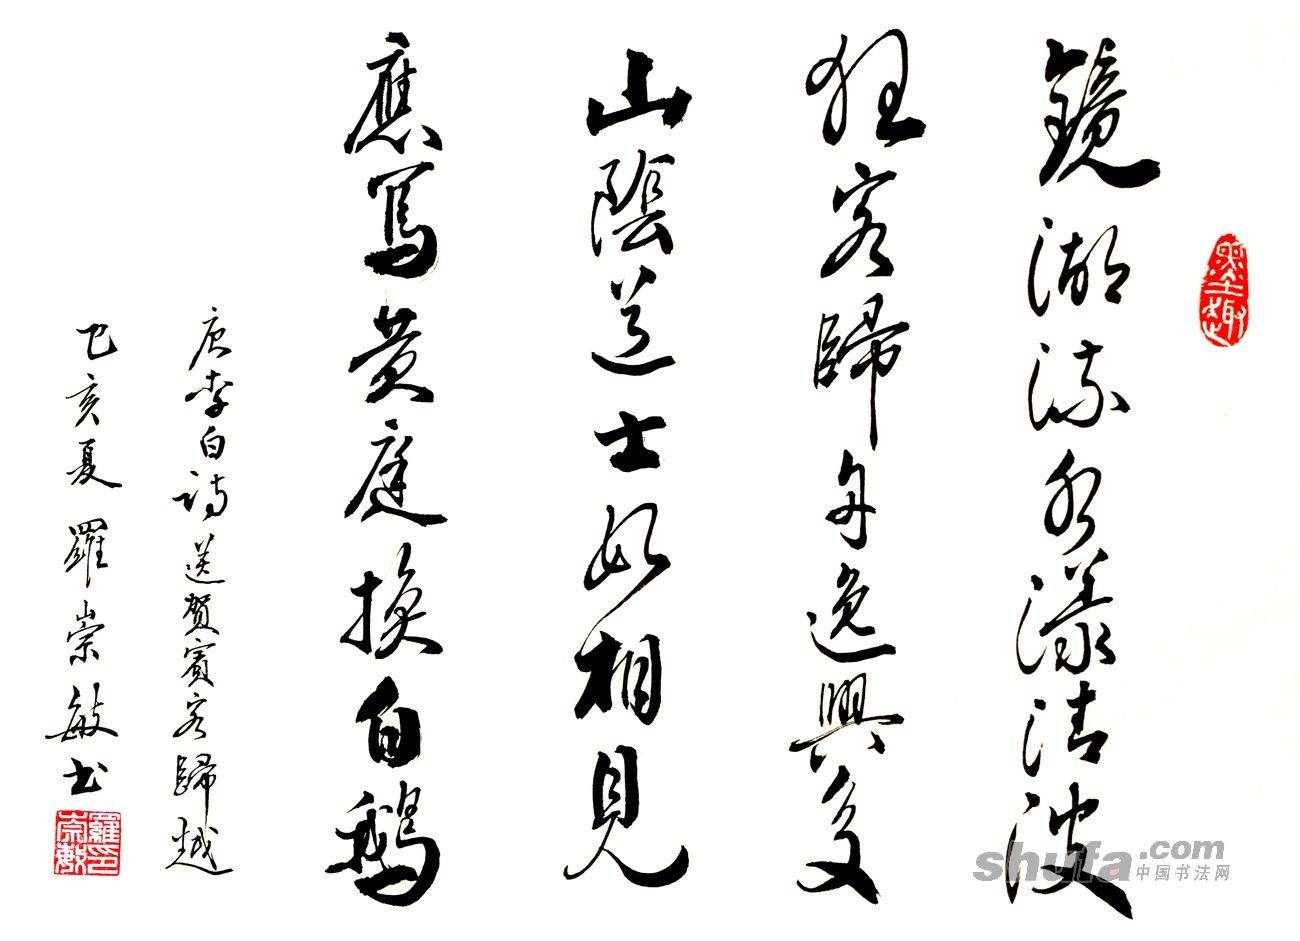 鏡湖流水漾清波
狂客歸舟逸興多
山陰道士如相見
應寫黄庭換白鵝
唐李白詩送賀賓客歸越
己亥夏 羅崇敏書
墨趣
羅崇敏印
shufa.com
中国书法网